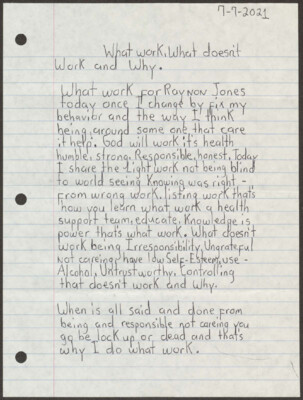 7-7-2021
What work, What doesn't
Work and Why.
What work for Raynon Jones
today once I change by fix my
behavior and the way I think
being around some one that care
it help. God will work it's health
humble, strong, Responsible, honest. Today
I share the Light work not being blind
to world seeing Knowing was right -
from wrong work. listing work that's
how you learn what work a health
support team, educate, Knowledge is
power that's what work. What doesn't
work being Irresponsibility, Ungrateful
not careing, have low Self-Esteem, use -
Alcohol, Untrustworthy, Controlling
that doesn't work and why.
When is all said and done from
being and responsible not careing you
go be lock up or dead and that's
why I do what work.